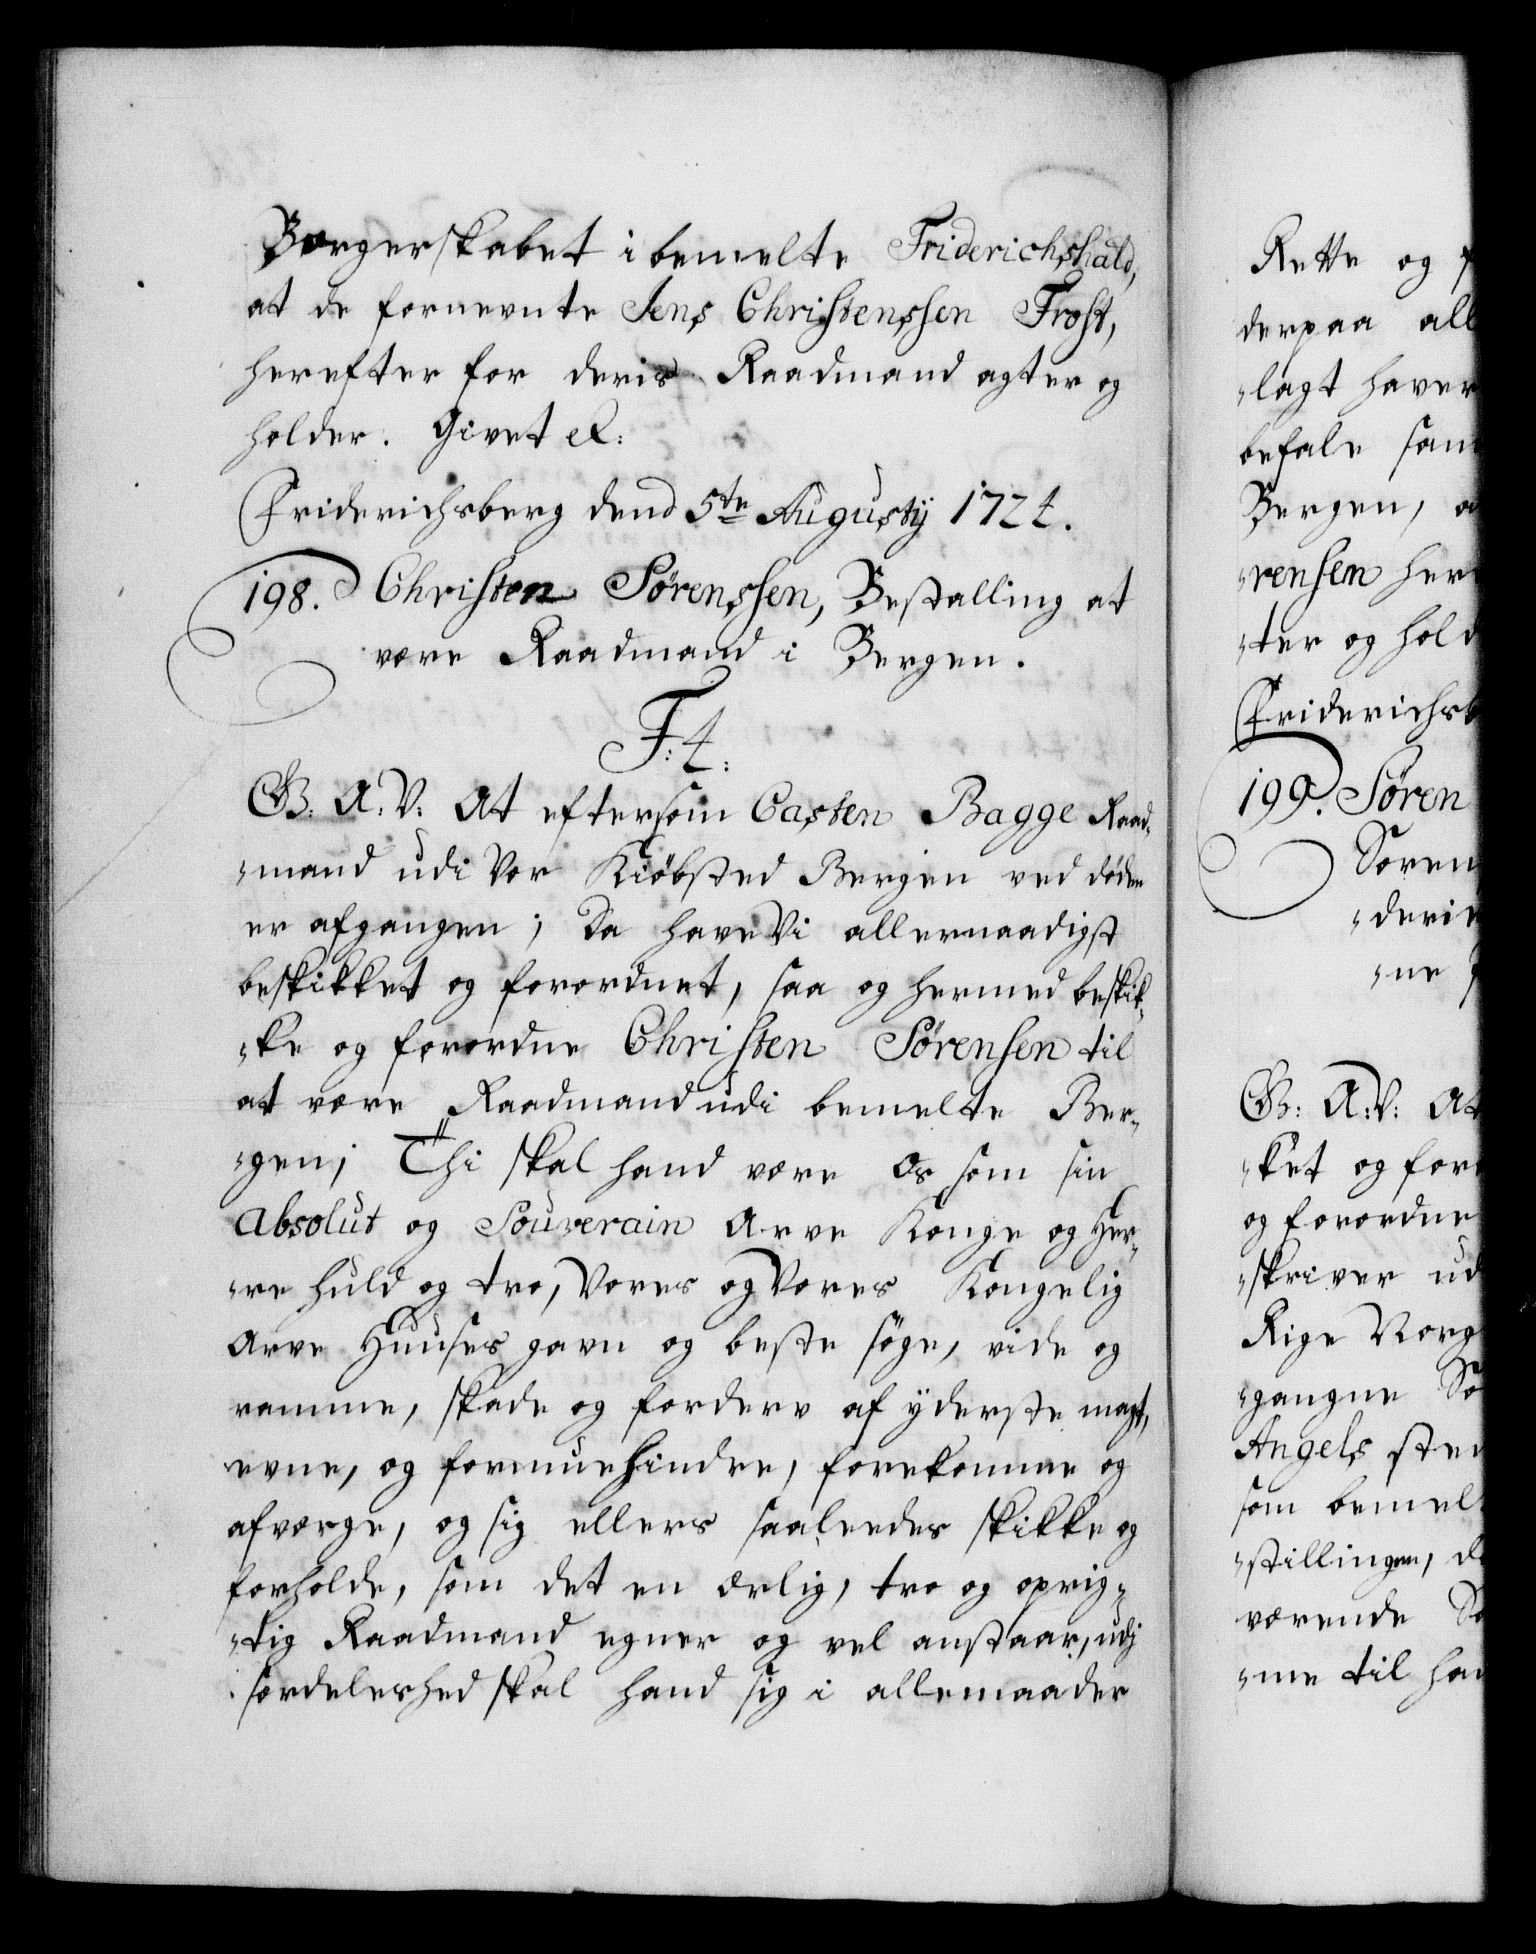 Borgerskabet i bemelte Friderichshald,
at de fornevnte Jens Christenssen Frost,
herefter for deris Raadmand agter og
holder. Givet &:
Friderichsberg dend 5te Augustij 1724.
198. Christen Sørenssen, Bestalling at
være Raadmand i Bergen.
F: 4:
G: A: V: At eftersom Casten Bagge Raad-
-mand udi Vor Kiøbsted Bergen ved døden
er afgangen; Da have Vi allernaadigst
beskikket og forordnet, saa og hermed beskik-
-ke og forordne Christen Sørensen til
at være Raadmand udi bemelte Ber-
-gen; Thi skal hand være Os som sin
Absolut og Souverain Arve Konge og Her-
-re huld og tro, Vores og Vores Kongelig
Arve Huuses gavn og beste søge, vide og
ramme, skade og forderv af yderste magt,
evne, og formue hindre, forekomme og
afværge, og sig ellers saaleedes skikke og
forholde, som det en ærlig, tro og oprig-
-tig Raadmand egner og vel anstaar, udj
særdeleshed skal hand sig i allemaader
Rette og
derpaa all
-lagt haver
befale sam
Bergen, a
-rensen her
-ter og hold
Friderichsb
199. Søren
Soren
-deri
-ne
G: A: V: At
-ket og foro
og forordne
-skriver ud
Rige Norg
-gangne So
Angels sted
som bemel
-stillingen, d
værende So
-me til han